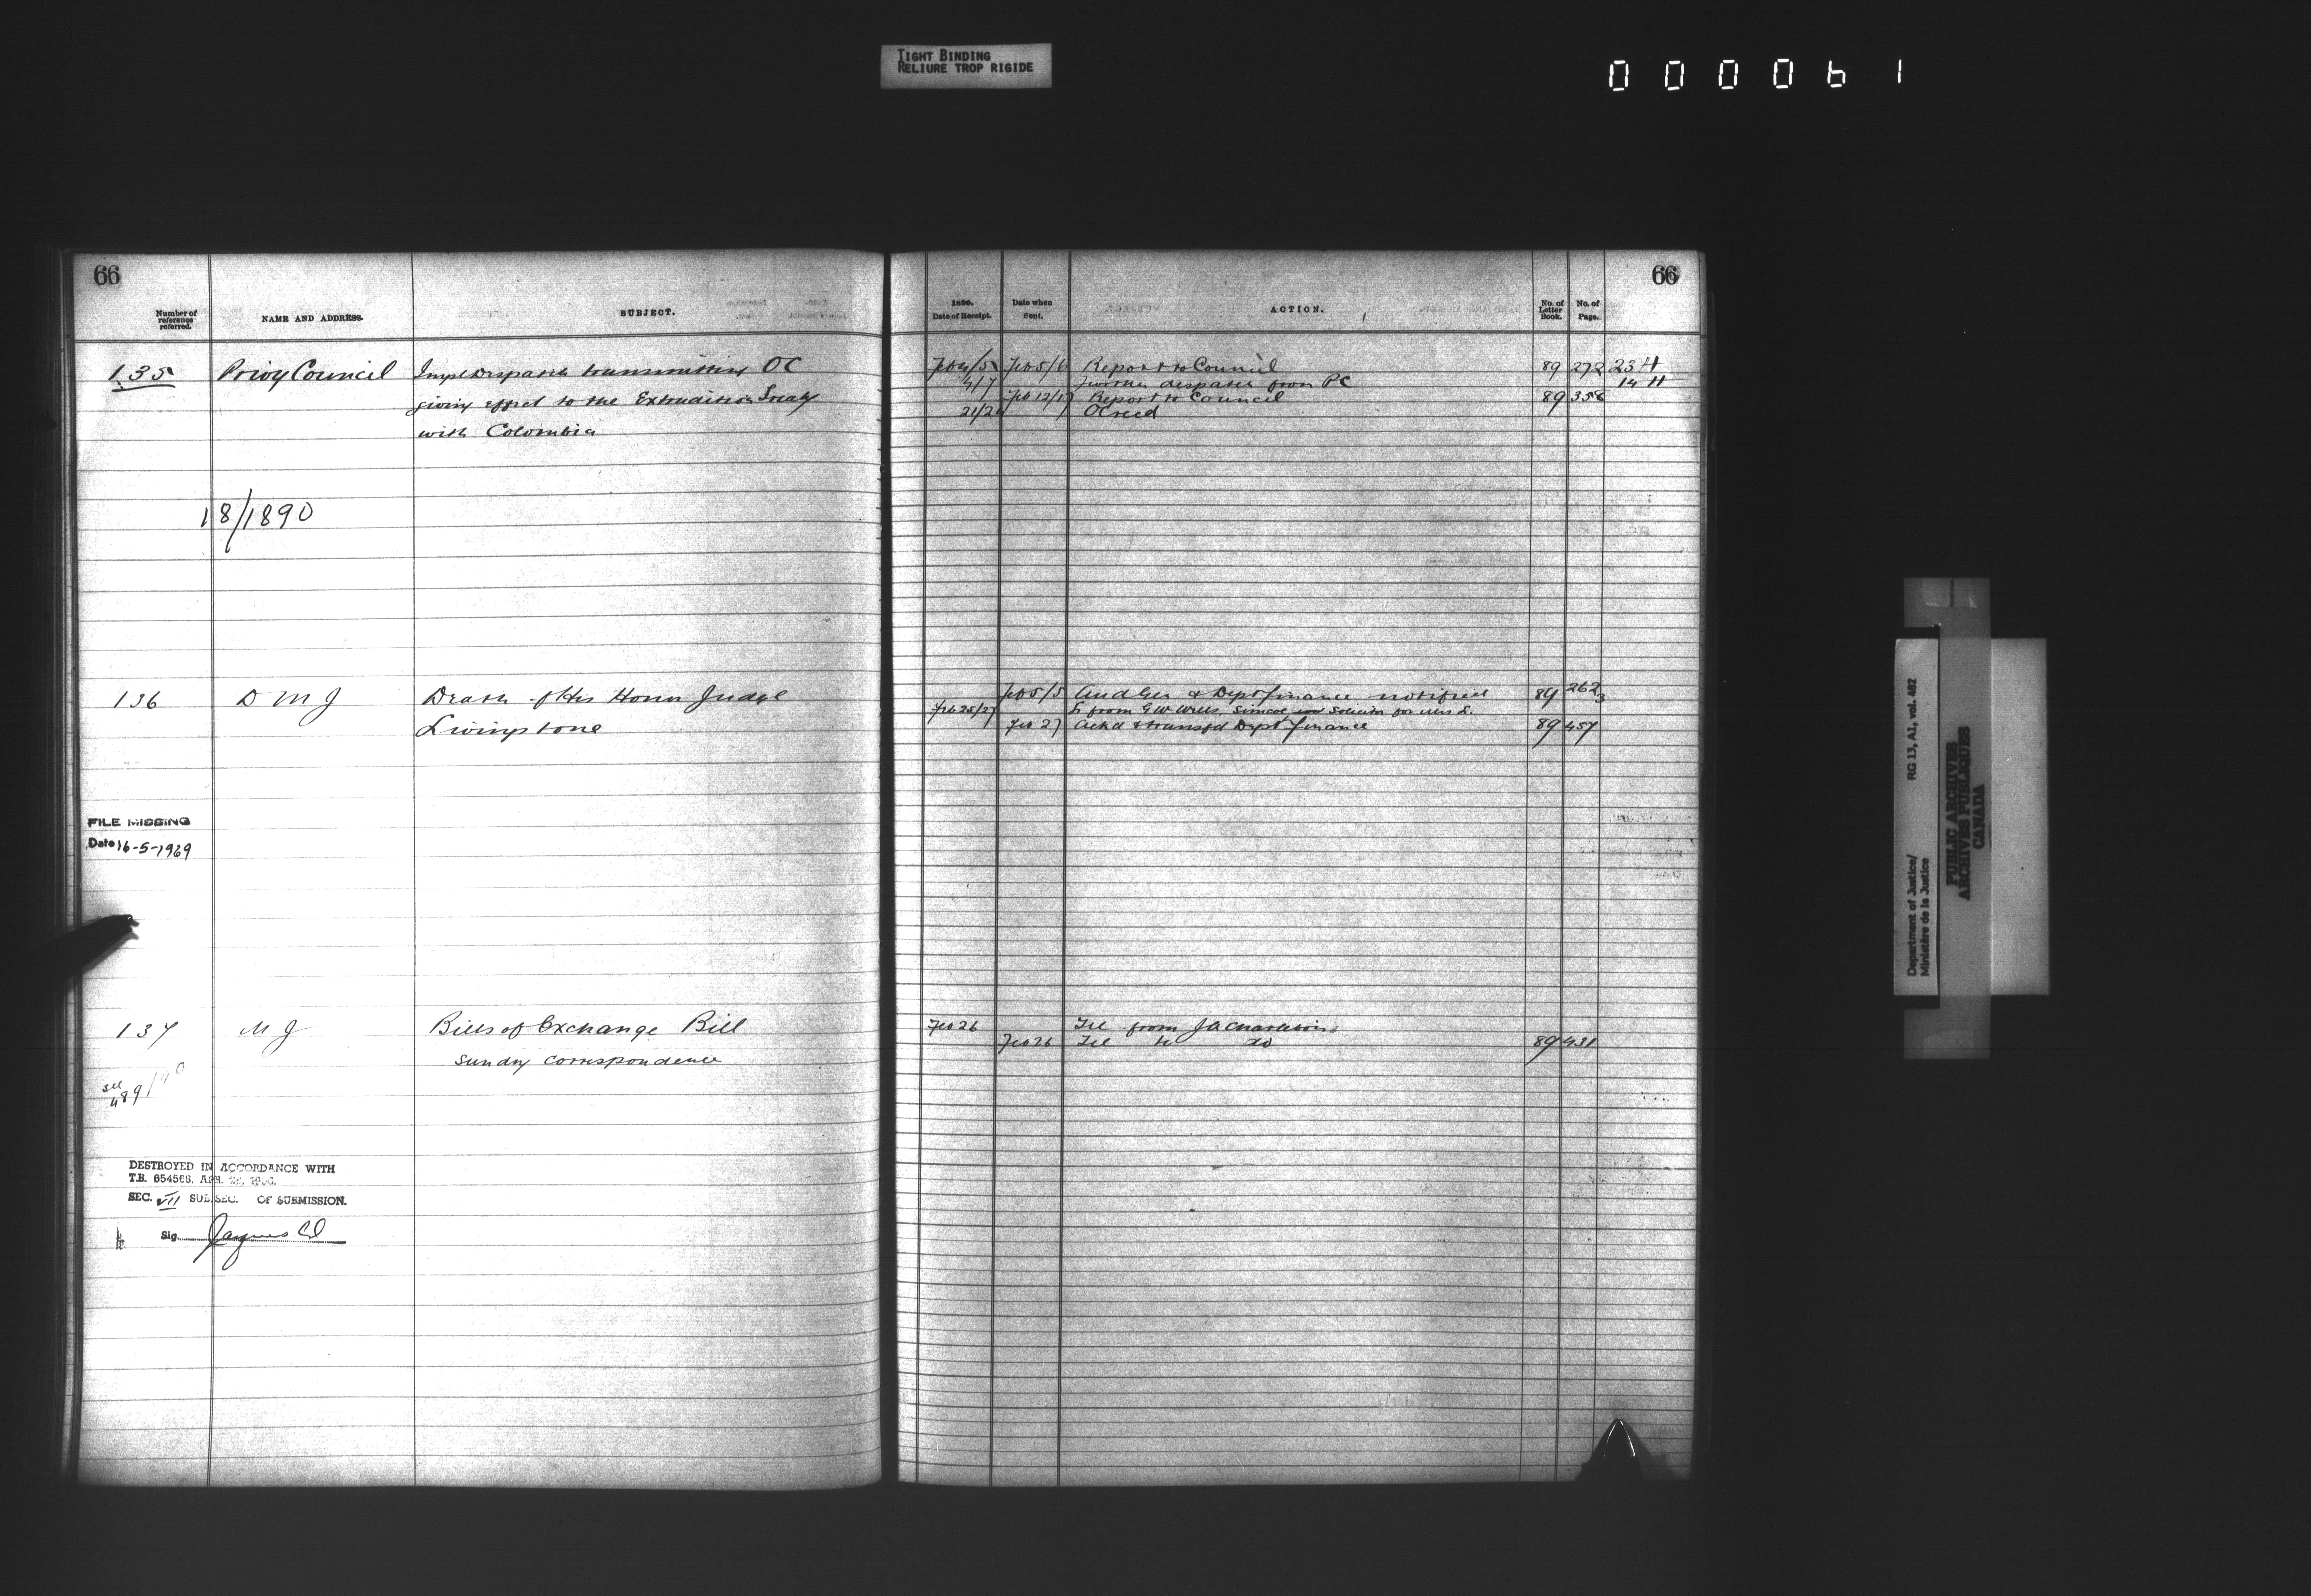 TIGHT BINDING
RELIURE TROP RIGIDE
000061
66
Number of reference referred.
NAME AND ADDRESS.
SUBJECT.
135 Privy Council Impl Despatch transmitting OC
giving effect to the Extradition Treaty
with Colombia
18/1890
136 D M J Death of His Honor Judge
Livingstone
FILE MISSING
Date 16-5-1969
137 M J Bills of Exchange Bill
sundry correspondence
see
489/90
DESTROYED IN ACCORDANCE WITH
T.B. 654568, APR.
SEC. VII SUB.SEC. OF SUBMISSION.
Sig.
66
1890.
Date of Receipt.
Date when Sent.
ACTION.
No. of Letter Book.
No. of Page.
Feb 4/5 Feb 5/6 Report to Council 89 272 23 H
4/7 further despatch from PC 14 H
Feb 12/17 Report to Council 89 358
21/24 OC recd
Feb 5/5 Aud Gen & Dept finance notified 89 262 3
Feb 25/27 L from G W Wells Simcoe Solicitor for Mrs L.
Feb 27 Ackd & transfd Dept finance 89 457
Feb 26 Tel from J A
Feb 26 Tel to do 89 431
Department of Justice/
Ministère de la Justice
RG 13, A1, vol. 482
PUBLIC ARCHIVES
ARCHIVES PUBLIQUES
CANADA